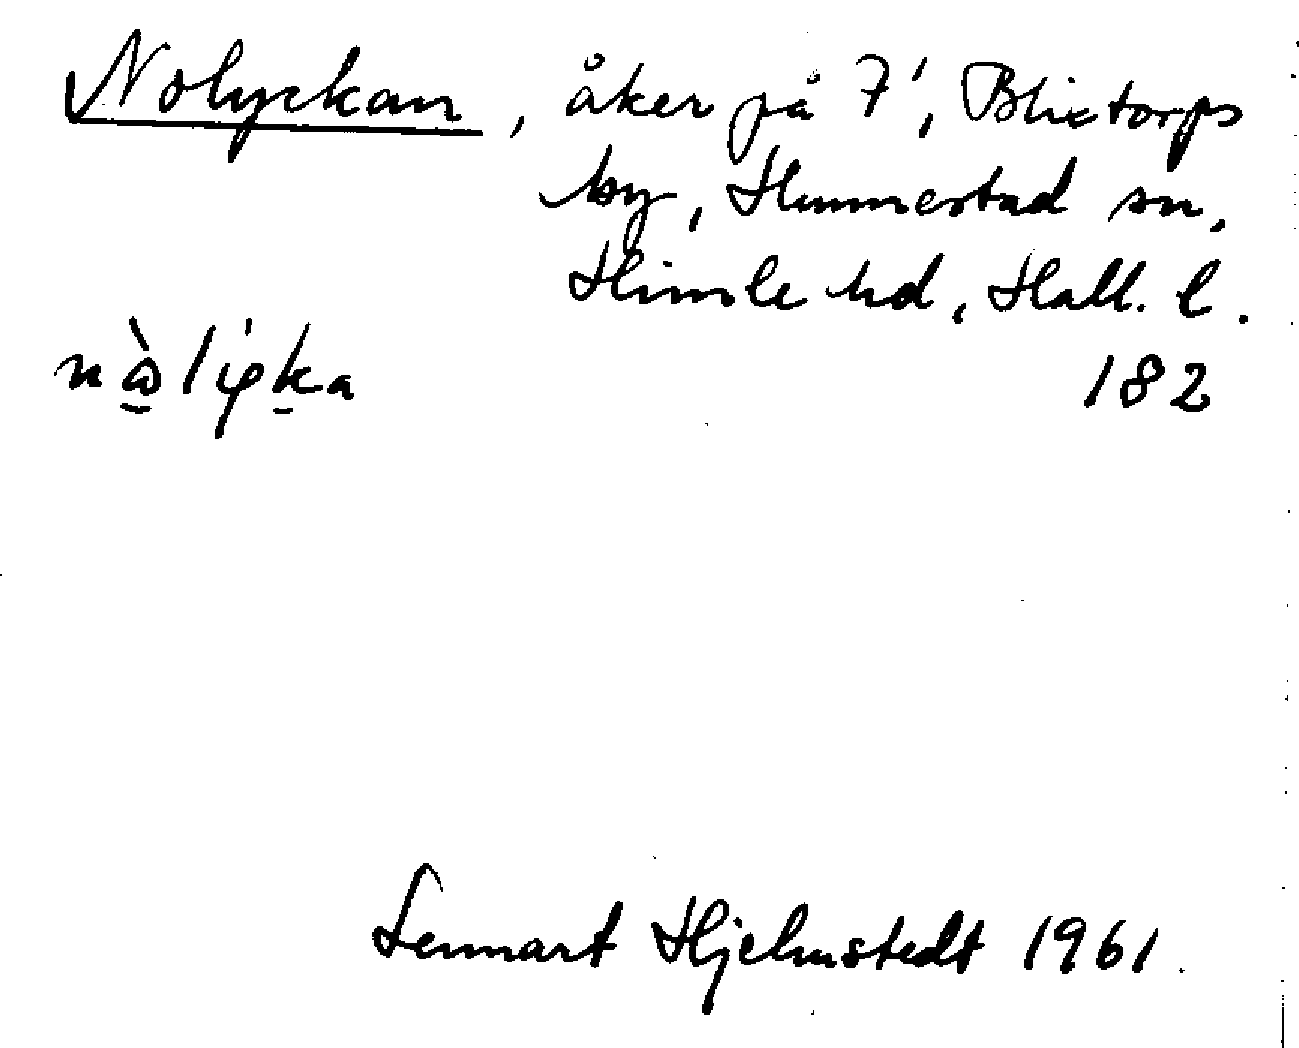 Nolyckan, åker på 7¹, Blixtorps
by, Hunnestad sn,
Himle hd, Hall. l.
182
Lennart Hjelmstedt 1961.